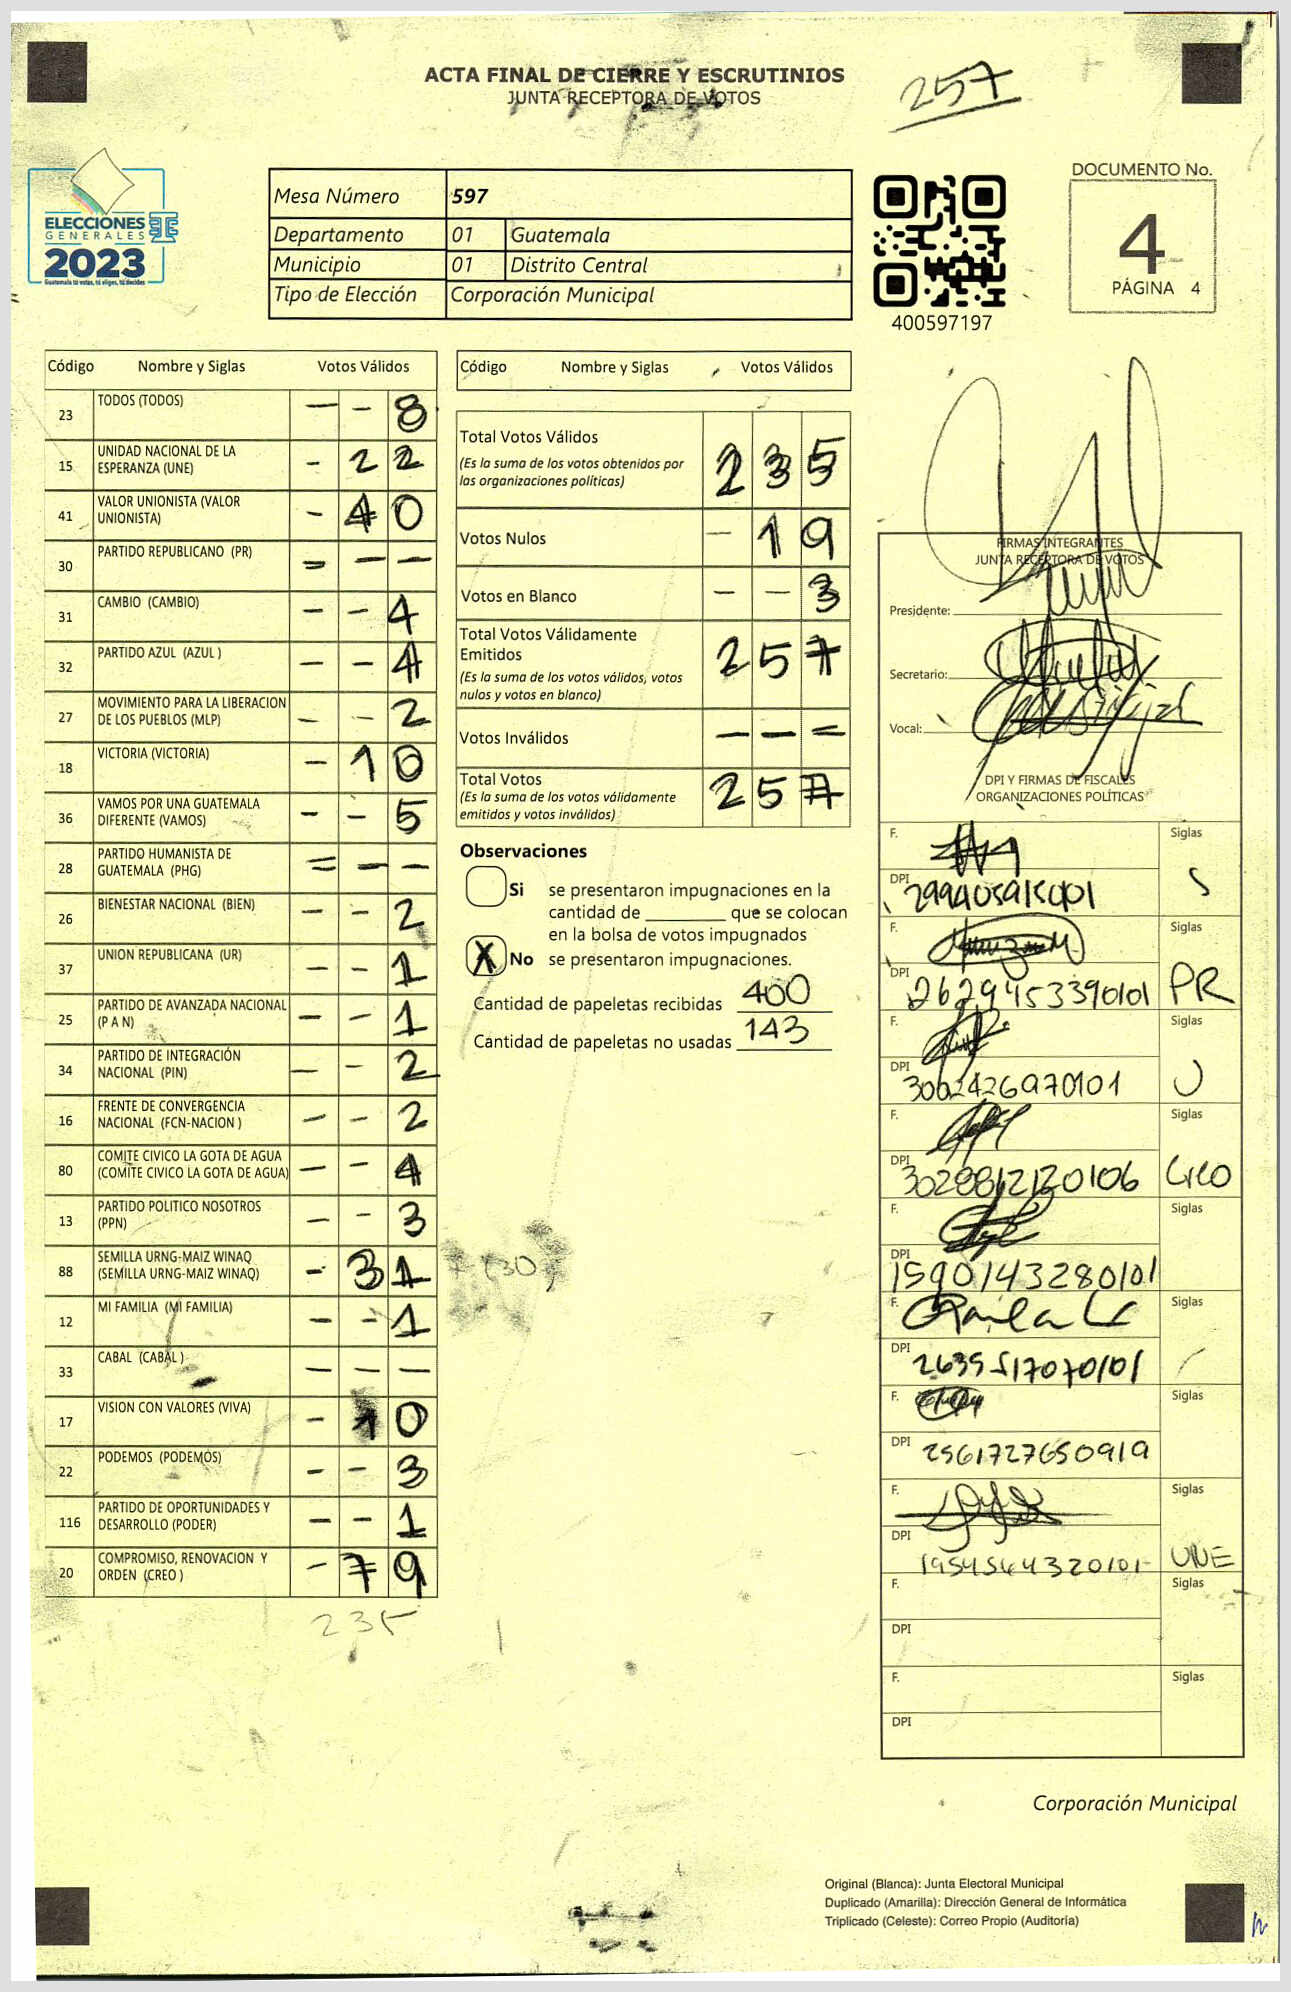 ACTA FINAL DE CIERRE Y ESCRUTINIOS
JUNTA RECEPTORA DE VOTOS
257
ELECCIONES
GENERALES
2023
Guatemala tú votas, tú eliges, tú decides
Mesa Número 597
Departamento 01 Guatemala
Municipio 01 Distrito Central
Tipo de Elección Corporación Municipal
400597197
DOCUMENTO No.
4
PÁGINA 4
Código Nombre y Siglas Votos Válidos
23 TODOS (TODOS) — - 8
15 UNIDAD NACIONAL DE LA ESPERANZA (UNE) - 2 2
41 VALOR UNIONISTA (VALOR UNIONISTA) - 4 0
30 PARTIDO REPUBLICANO (PR) = — —
31 CAMBIO (CAMBIO) - - 4
32 PARTIDO AZUL (AZUL ) - - 4
27 MOVIMIENTO PARA LA LIBERACION DE LOS PUEBLOS (MLP) - - 2
18 VICTORIA (VICTORIA) - 1 0
36 VAMOS POR UNA GUATEMALA DIFERENTE (VAMOS) - - 5
28 PARTIDO HUMANISTA DE GUATEMALA (PHG) = — —
26 BIENESTAR NACIONAL (BIEN) - - 2
37 UNION REPUBLICANA (UR) - - 1
25 PARTIDO DE AVANZADA NACIONAL (P A N) - - 1
34 PARTIDO DE INTEGRACIÓN NACIONAL (PIN) — - 2
16 FRENTE DE CONVERGENCIA NACIONAL (FCN-NACION ) - - 2
80 COMITE CIVICO LA GOTA DE AGUA (COMITE CIVICO LA GOTA DE AGUA) - - 4
13 PARTIDO POLITICO NOSOTROS (PPN) - - 3
88 SEMILLA URNG-MAIZ WINAQ (SEMILLA URNG-MAIZ WINAQ) - 3 1
12 MI FAMILIA (MI FAMILIA) - - 1
33 CABAL (CABAL ) — — —
17 VISION CON VALORES (VIVA) - 1 0
22 PODEMOS (PODEMOS) - - 3
116 PARTIDO DE OPORTUNIDADES Y DESARROLLO (PODER) - - 1
20 COMPROMISO, RENOVACION Y ORDEN (CREO ) - 7 9
235
Código Nombre y Siglas Votos Válidos
Total Votos Válidos 2 3 5
(Es la suma de los votos obtenidos por
las organizaciones políticas)
Votos Nulos - 1 9
Votos en Blanco - - 3
Total Votos Válidamente
Emitidos 2 5 7
(Es la suma de los votos válidos, votos
nulos y votos en blanco)
Votos Inválidos — — =
Total Votos 2 5 7
(Es la suma de los votos válidamente
emitidos y votos inválidos)
Observaciones
Si se presentaron impugnaciones en la
cantidad de ________ que se colocan
en la bolsa de votos impugnados
X No se presentaron impugnaciones.
Cantidad de papeletas recibidas 400
Cantidad de papeletas no usadas 143
(30)
FIRMAS INTEGRANTES
JUNTA RECEPTORA DE VOTOS
Presidente:
Secretario:
Vocal:
DPI Y FIRMAS DE FISCALES
ORGANIZACIONES POLÍTICAS
F. Siglas
DPI S
F. Siglas
DPI 2629453390101 PR
F. Siglas
DPI 3002426970101 U
F. Siglas
DPI 3028812120106 Creo
F. Siglas
DPI 1590143280101
F. Siglas
DPI 2635517070101
F. Siglas
DPI 2561727650919
F. Siglas
DPI 1954564320101 UNE
F. Siglas
DPI
F. Siglas
DPI
Corporación Municipal
Original (Blanca): Junta Electoral Municipal
Duplicado (Amarilla): Dirección General de Informática
Triplicado (Celeste): Correo Propio (Auditoría)